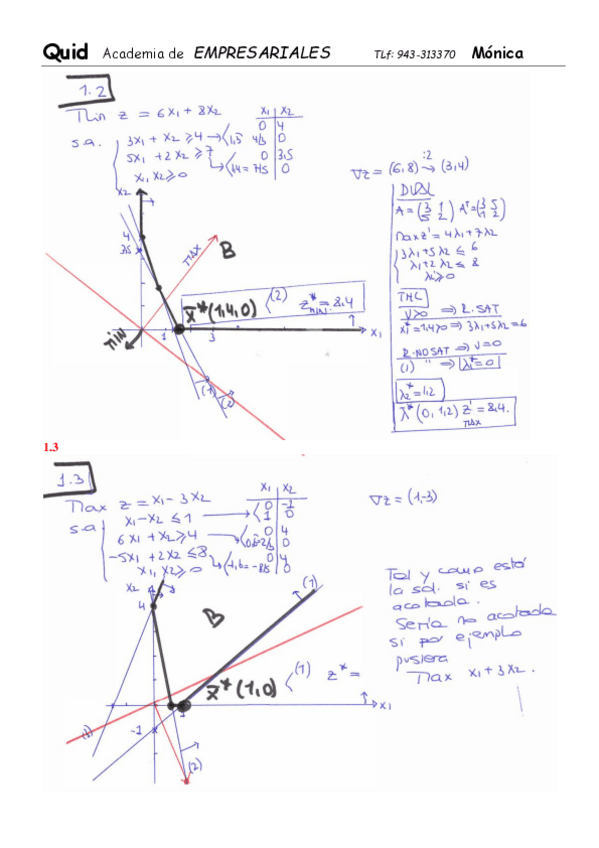 Quid Academia de EMPRESARIALES TLf: 943-313370 Mónica
1.2
Min z = 6x₁ + 8x₂
s.a. 3x₁ + x₂ ≥ 4
5x₁ + 2x₂ ≥ 7
x₁, x₂ ≥ 0
x₁ x₂
0 4
4/3 0
0 3,5
1,4 = 7/5 0
∇z = (6,8) → (3,4)
:2
DUAL
A = (3 1 5 2) Aᵗ = (3 5 1 2)
Max z' = 4λ₁ + 7λ₂
3λ₁ + 5λ₂ ≤ 6
λ₁ + 2λ₂ ≤ 8
λ' ≥ 0
THC
V>0 ⇒ R.SAT
x₁* = 1,4>0 ⇒ 3λ₁ + 5λ₂ = 6
R.NOSAT ⇒ V=0
(1) " ⇒ λ₁* = 0
λ₂* = 1,2
λ̄* (0, 1,2) z' = 8,4.
MAX
x₂
4
3,5
MAX
B
x̄* (1,4, 0) (2) z* = 8,4
MIN
MIN
1
3
x₁
(1)
(2)
1.3
1.3
Max z = x₁ - 3x₂
s.a. x₁ - x₂ ≤ 1
6x₁ + x₂ ≥ 4
-5x₁ + 2x₂ ≤ 8
x₁, x₂ ≥ 0
x₁ x₂
0 -1
1 0
0 4
0,6̄=2/3 0
0 4
-1,6 = -8/5 0
∇z = (1,-3)
Tal y como está
la sol. si es
acotada.
Sería no acotada
si por ejemplo
pusiera
Max x₁ + 3x₂.
x₂
4
B
(1)
x̄* (1,0) (1) z* =
1
x₁
-1
(2)